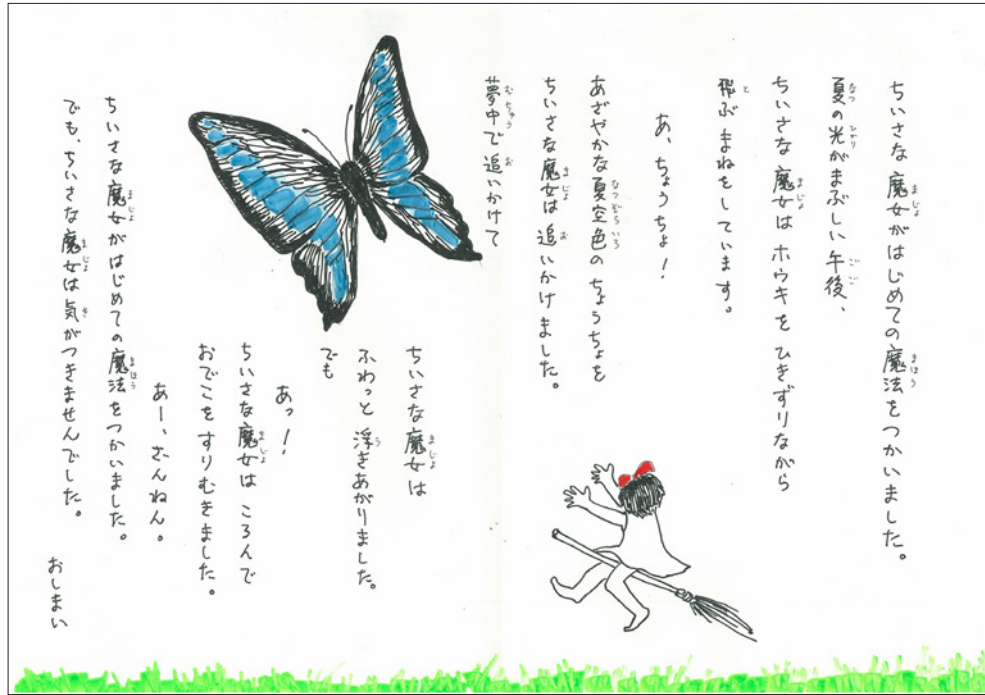 ちいさな魔女がはじめての魔法をつかいました。
夏の光がまぶしい午後、
ちいさな魔女はホウキをひきずりながら
飛ぶまねをしています。
あ、ちょうちょ！
あざやかな夏空色のちょうちょを
ちいさな魔女は追いかけました。
夢中で追いかけて
ちいさな魔女は
ふわっと浮きあがりました。
でも
あっ！
ちいさな魔女はころんで
おでこをすりむきました。
あー、ざんねん。
ちいさな魔女がはじめての魔法をつかいました。
でも、ちいさな魔女は気がつきませんでした。
おしまい